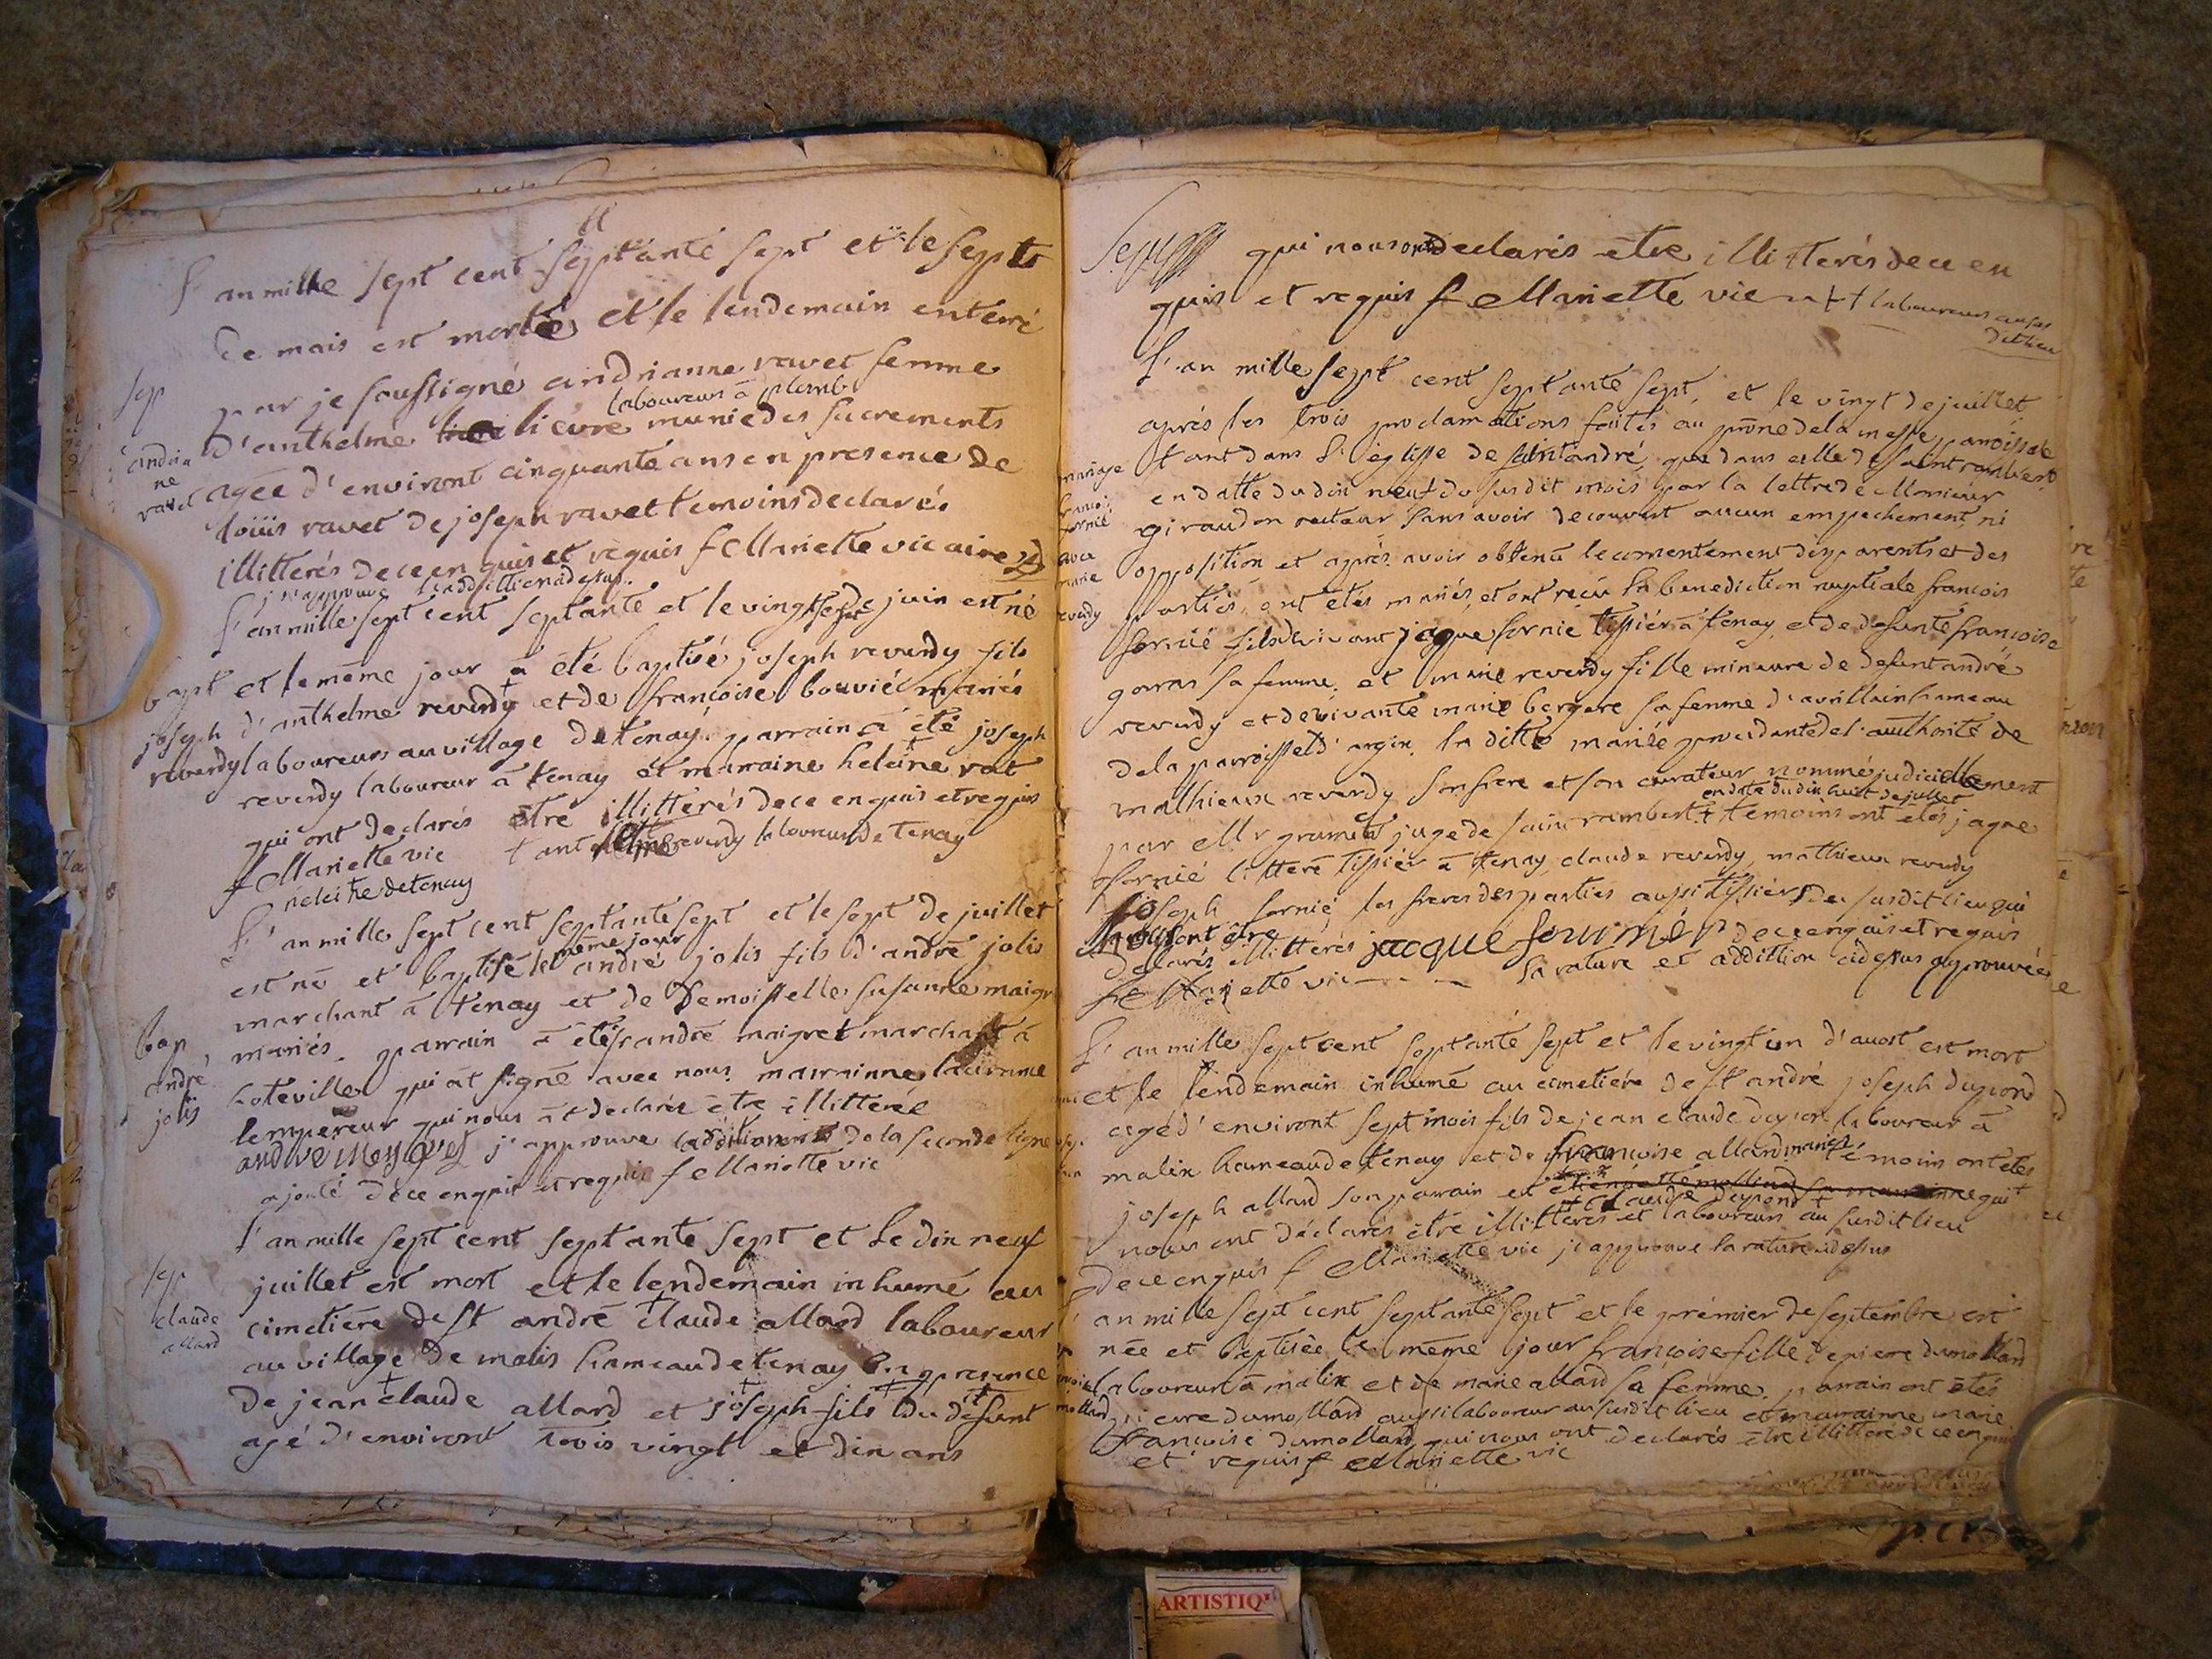 l'an mille sept cent septante sept et le septe
de mais est morte et le lendemain enterré
par je soussigné andrianne ravet femme
laboureurs à plomb
d'anthelme lievre munie des sacrements
agée d'environt cinquante ans en presence de
loüis ravet de joseph ravet temoins declarés
illitterés de ce enquis et requis f Mariette vicaire
j'approuve l'addittion cidesus.
l'an mille sept cent septante et le vingt sept de juin est né
et le même jour a été baptisé joseph reverdy fils
d'anthelme reverdy et de françoise bouvié mariés
laboureurs au village de tenay. parrain à été joseph
reverdy laboureur à tenay et marraine heleine rat
qui ont declarés être illitterés de ce enquis et requis
f Mariette vic † anthelme reverdy laboureur de tenay
de tenay
L'an mille sept cent septante sept et le sept de juillet
même jour
est né et baptisé le andré jolis fils d'andré jolis
marchant à tenay et de Demoisselle susanne maigre
mariés. parrain à étés andré maigret marchant à
hoteville qui at signé avec nous. marrainne
lempereur qui nous at declarée être illitterée
andré Maygret j'approuve la de la seconde ligne
ajouté de ce enquis et requis f Mariette vic
l'an mille sept cent septante sept et Le dix neuf
juillet est mort et le lendemain inhumé au
cimetière de st andré claude allard laboureur
au village de malis hameau de tenay En presence
De jean claude allard et joseph fils du défunt
agé d'environt trois vingt et dix ans
sep
andria
ne
ravet
bapt
joseph
reverdy
bap
andré
jolis
sep
claude
allard
qui nous ont declarés être illitterés de ce en
quis et requis f Mariette vic †† laboureurs au sus
dit lieu
L'an mille sept cent septante sept, et le vingt de juillet
après les trois proclamations faites au prône de la messe paroissale
tant dans l'églisse de saintandré que dans celle de saint rambert
en datte du dix neuf du susdit mois par la lettre de Monsieur
giraudon recteur sans avoir decouvert aucun empechement ni
opposition et après avoir obtenu le consentement des parents et des
parties, ont étés mariés, et ont reçu la benediction nuptiale françois
fornié fils de vivant jaque fornié tissiér à tenay, et de defunte françoise
goras sa femme. et marie reverdy fille mineure de defunt andré
reverdy et de vivante marie bergere sa femme d'avrillain hameau
de la parroisse d'argix. la ditte mariée procedante de l'authorité de
mathieux reverdy son frere et son curateur nommé judiciellement
en date du dix huit de juillet
par Mr gramet juge de saint rambert. † temoins ont etés jaque
fornié litteré tissiér à tenay, claude reverdy, mathieux reverdy
joseph fornié les freres des parties aussi tissiérs du susdit lieu qui
nous ont être
declarés illitterés jacque fournié de ce enquis et requis
f Mariette vic - - - la rature et addittion cidesus approuvées
L'an mille sept cent septante sept et le vingt un d'auost est mort
et le lendemain inhumé au cimetiére de st andré joseph dupond
agé d'environt sept mois fils de jean claude dupont laboureur à
malix hameau de tenay et de françoise allard mariés. témoins ont etés
joseph allard son parrain et etiennette mollard sa marrainne qui
† claude dupond
nous ont déclarés être illitterés et laboureurs au susdit lieu
De ce enquis f Mariette vic je approuve la rature cidesus
l'an mille sept cent septante sept et le prémier de septembre est
née et baptisée le même jour françoise fille de piere dumollard
laboureur à malix et de marie allard sa femme. parrain ont étés
piere dumollard aussi laboureur au susdit lieu et marrainne marie
françoise dumollard, qui nous ont declarés être illitteré de ce enquis
et requis f Mariette vic
mariage
françois
fornié
avec
marie
reverdy
mollard
ARTISTIQU